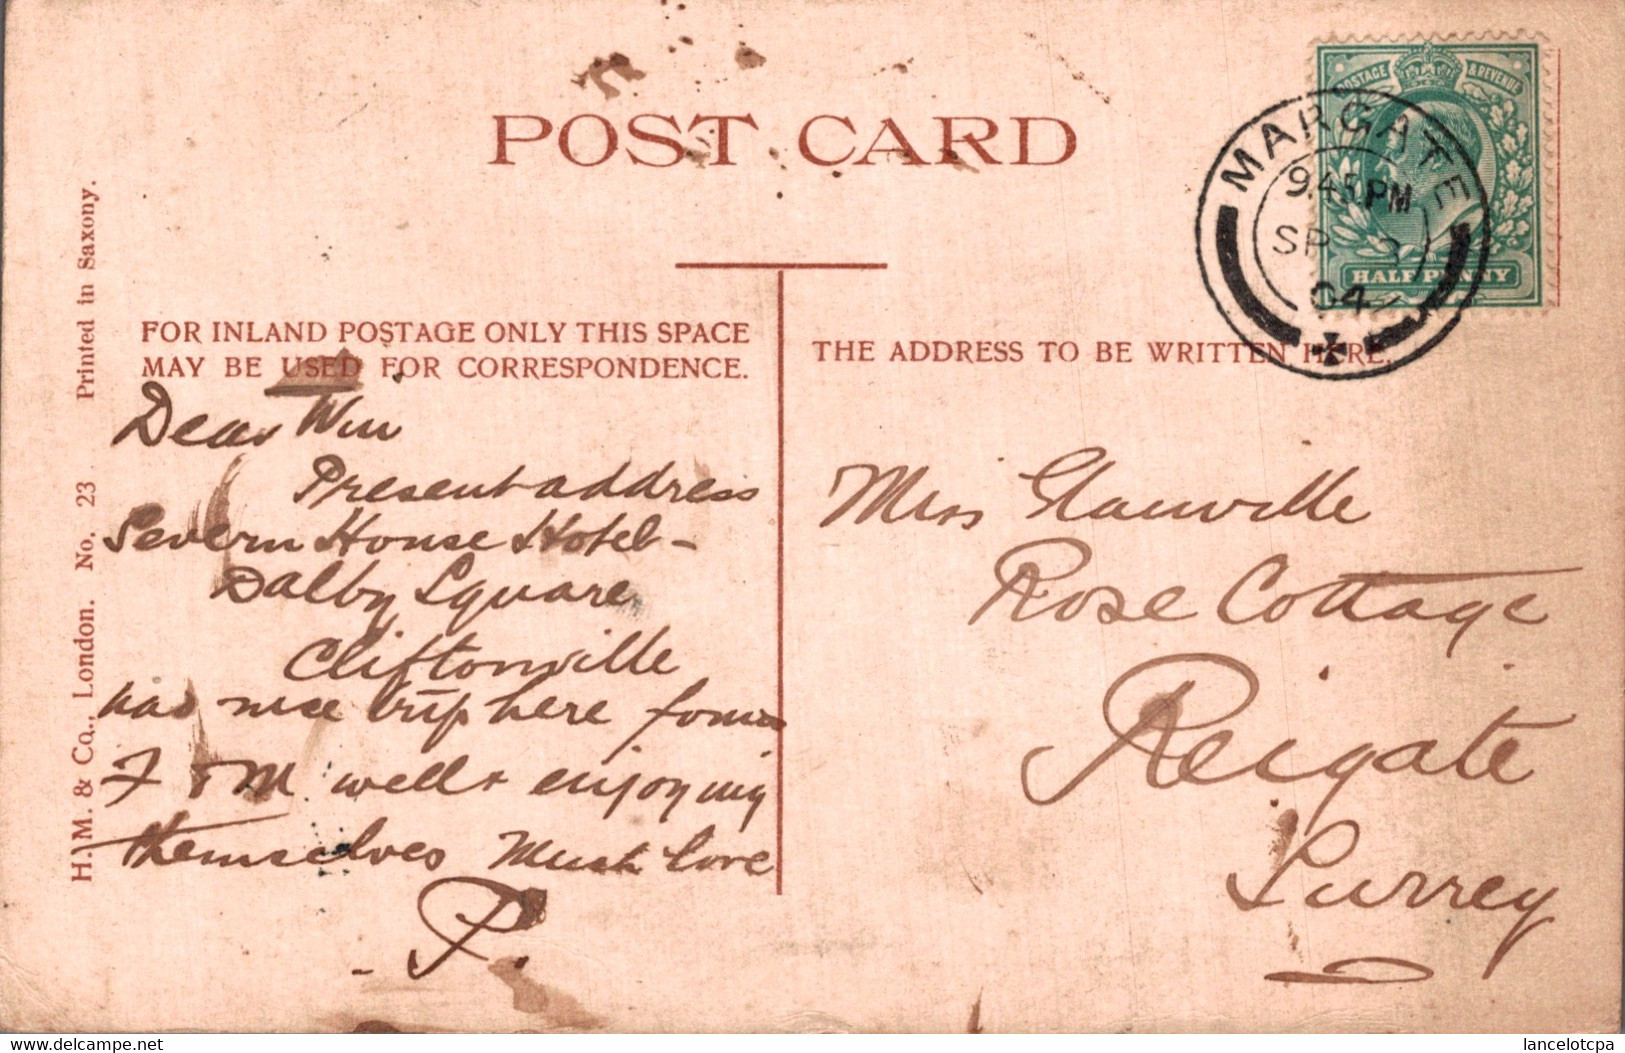 POST CARD
POSTAGE & REVENUE
HALFPENNY
MARGATE
9.45 PM
SP 3
04
FOR INLAND POSTAGE ONLY THIS SPACE
MAY BE USED FOR CORRESPONDENCE.
THE ADDRESS TO BE WRITTEN HERE.
H.M. & Co., London. No. 23 Printed in Saxony.
Dear Win
Present address
Severn House Hotel -
Dalby Square
Cliftonville
had nice trip here found
F & M well & enjoying
themselves Much love
P.
Miss Glanville
Rose Cottage
Reigate
Surrey
www.delcampe.net
lancelotcpa